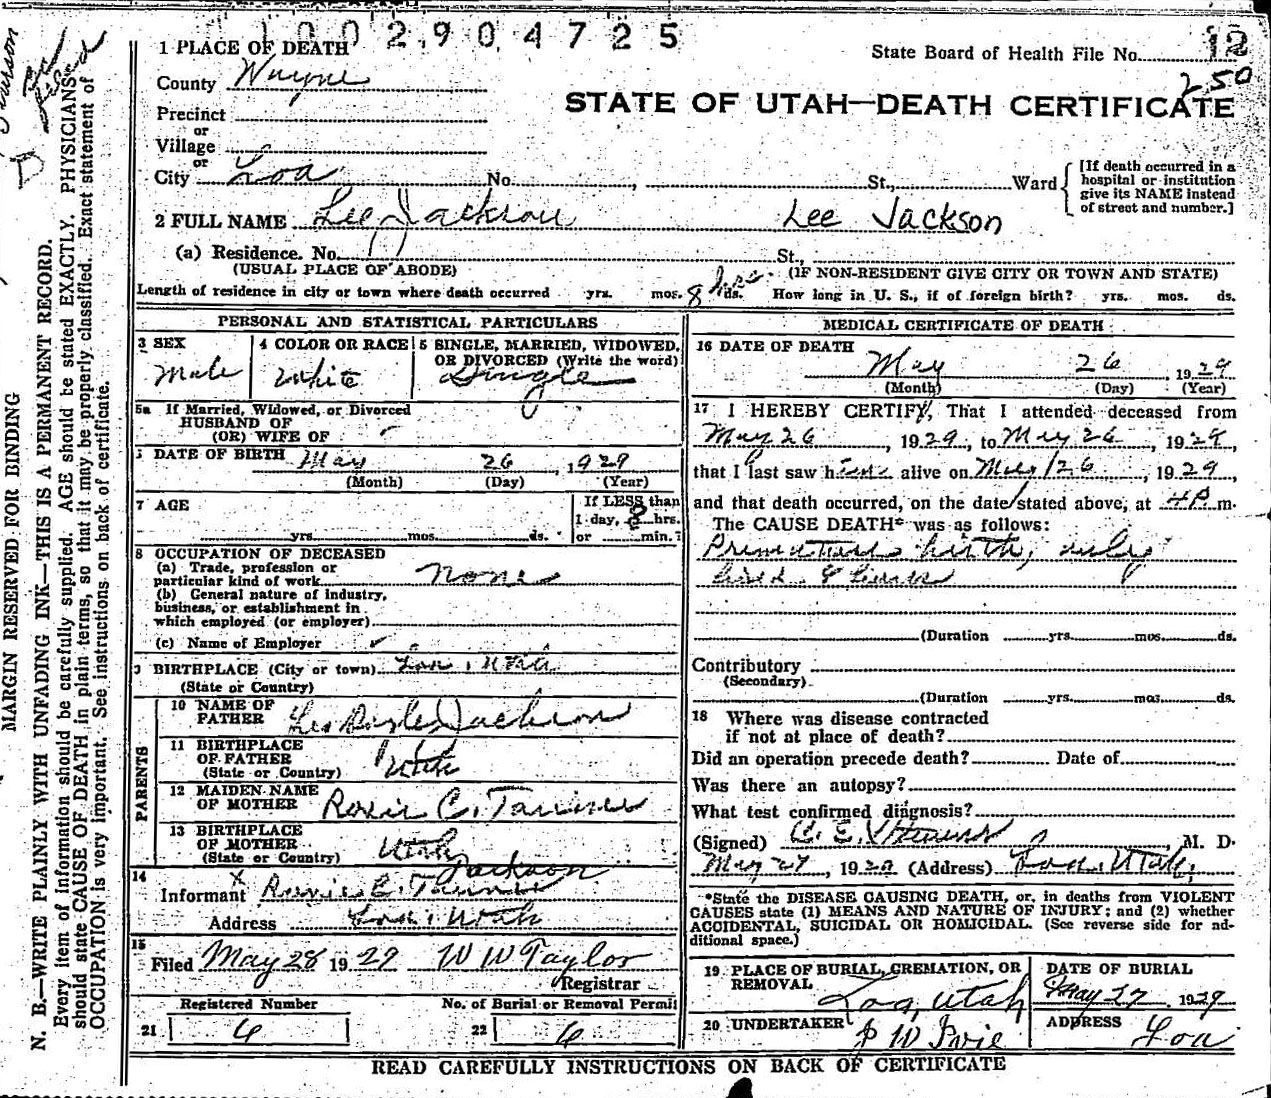 1 0 0 2 9 0 4 7 2 5
1 PLACE OF DEATH
State Board of Health File No. 12
250
County Wayne
STATE OF UTAH—DEATH CERTIFICATE
Precinct
or
Village
or
City Loa No. , St., Ward
[If death occurred in a hospital or institution give its NAME instead of street and number.]
2 FULL NAME Lee Jackson Lee Jackson
(a) Residence. No. St.,
(USUAL PLACE OF ABODE) (IF NON-RESIDENT GIVE CITY OR TOWN AND STATE)
Length of residence in city or town where death occurred yrs. mos. 8 hrs. ds. How long in U. S., if of foreign birth? yrs. mos. ds.
PERSONAL AND STATISTICAL PARTICULARS
3 SEX
Male
4 COLOR OR RACE
White
5 SINGLE, MARRIED, WIDOWED, OR DIVORCED (Write the word)
Single
5a If Married, Widowed, or Divorced
HUSBAND OF
(OR) WIFE OF
DATE OF BIRTH May 26, 1929
(Month) (Day) (Year)
7 AGE
yrs. mos. ds.
If LESS than
1 day, 8 hrs.
or min.?
8 OCCUPATION OF DECEASED
(a) Trade, profession or
particular kind of work none
(b) General nature of industry,
business, or establishment in
which employed (or employer)
(c) Name of Employer
9 BIRTHPLACE (City or town) Loa, Utah
(State or Country)
PARENTS
10 NAME OF FATHER Jackson
11 BIRTHPLACE OF FATHER Utah
(State or Country)
12 MAIDEN NAME OF MOTHER C.
13 BIRTHPLACE OF MOTHER Utah
(State or Country)
Jackson
14
Informant
Address Loa, Utah
15
Filed May 28 1929 W W Taylor
Registrar
Registered Number No. of Burial or Removal Permit
21 6 22 6
MEDICAL CERTIFICATE OF DEATH
16 DATE OF DEATH
May 26 1929
(Month) (Day) (Year)
17 I HEREBY CERTIFY, That I attended deceased from
May 26, 1929, to May 26, 1929,
that I last saw him alive on May 26, 1929,
and that death occurred, on the date stated above, at 4P m.
The CAUSE DEATH* was as follows:
Premature birth, only
lived 8 hours
(Duration yrs. mos. ds.
Contributory
(Secondary)
(Duration yrs. mos. ds.
18 Where was disease contracted
if not at place of death?
Did an operation precede death? Date of
Was there an autopsy?
What test confirmed diagnosis?
(Signed) , M. D.
May 27, 1929 (Address) Loa, Utah,
*State the DISEASE CAUSING DEATH, or, in deaths from VIOLENT
CAUSES state (1) MEANS AND NATURE OF INJURY; and (2) whether
ACCIDENTAL, SUICIDAL OR HOMICIDAL. (See reverse side for additional space.)
19 PLACE OF BURIAL, CREMATION, OR REMOVAL
Loa, Utah
DATE OF BURIAL
May 27 1929
20 UNDERTAKER
ADDRESS
Loa
READ CAREFULLY INSTRUCTIONS ON BACK OF CERTIFICATE
MARGIN RESERVED FOR BINDING
N. B.—WRITE PLAINLY WITH UNFADING INK—THIS IS A PERMANENT RECORD.
Every item of information should be carefully supplied. AGE should be stated EXACTLY. PHYSICIANS
should state CAUSE OF DEATH in plain terms, so that it may be properly classified. Exact statement of
OCCUPATION is very important. See instructions on back of certificate.